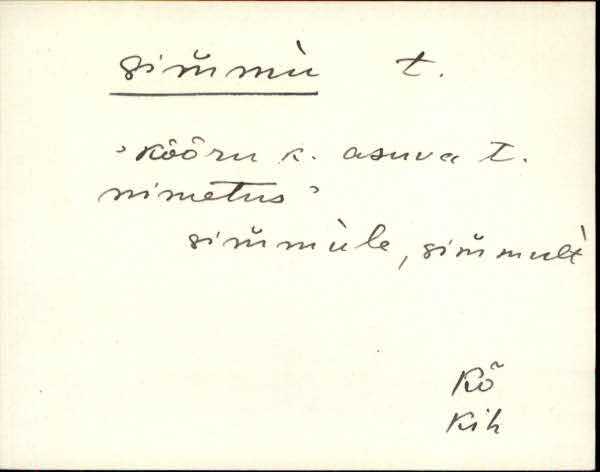 sim̆mù t.
'kõõru k. asuva t.
nimetus'
sim̆mùle, sim̆mult̀
Kõ
Kih